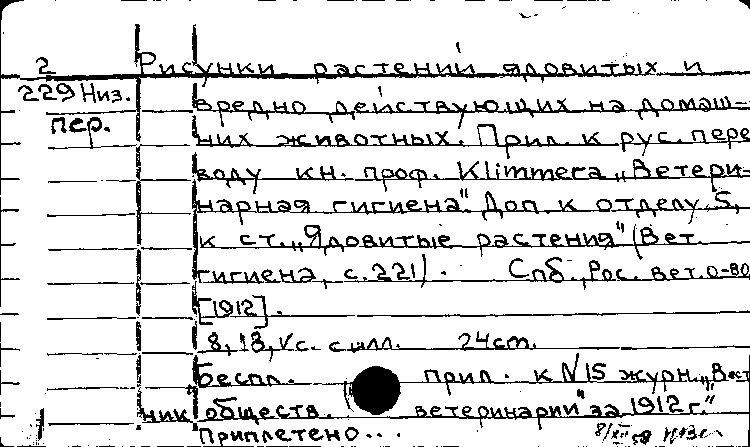 2 Рисунки растений ядовитых и
229 Низ. вредно действующих на домаш-
пер. них животных. Прил. к рус. пере
воду кн. проф. Klimmera „Ветери-
нарная гигиена". Доп. к отделу 5,
к ст. „Ядовитые растения" (Вет.
гигиена, с. 221). Спб., Рос. вет. о-во
[1912].
8, 18, V с. с илл. 24 cm.
беспл. прил. к N 15 журн. „Вест
ник обществ. ветеринарии" за 1912 г."
Приплетено...